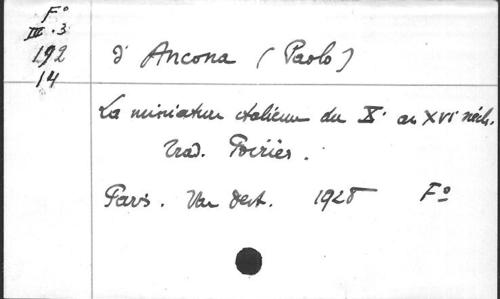 F°
III.3
192
14
d'Ancona (Paolo)
La miniature italienne du X° au XVI° siècle.
Trad. Poirier.
Paris. Van Oest. 1925 F°